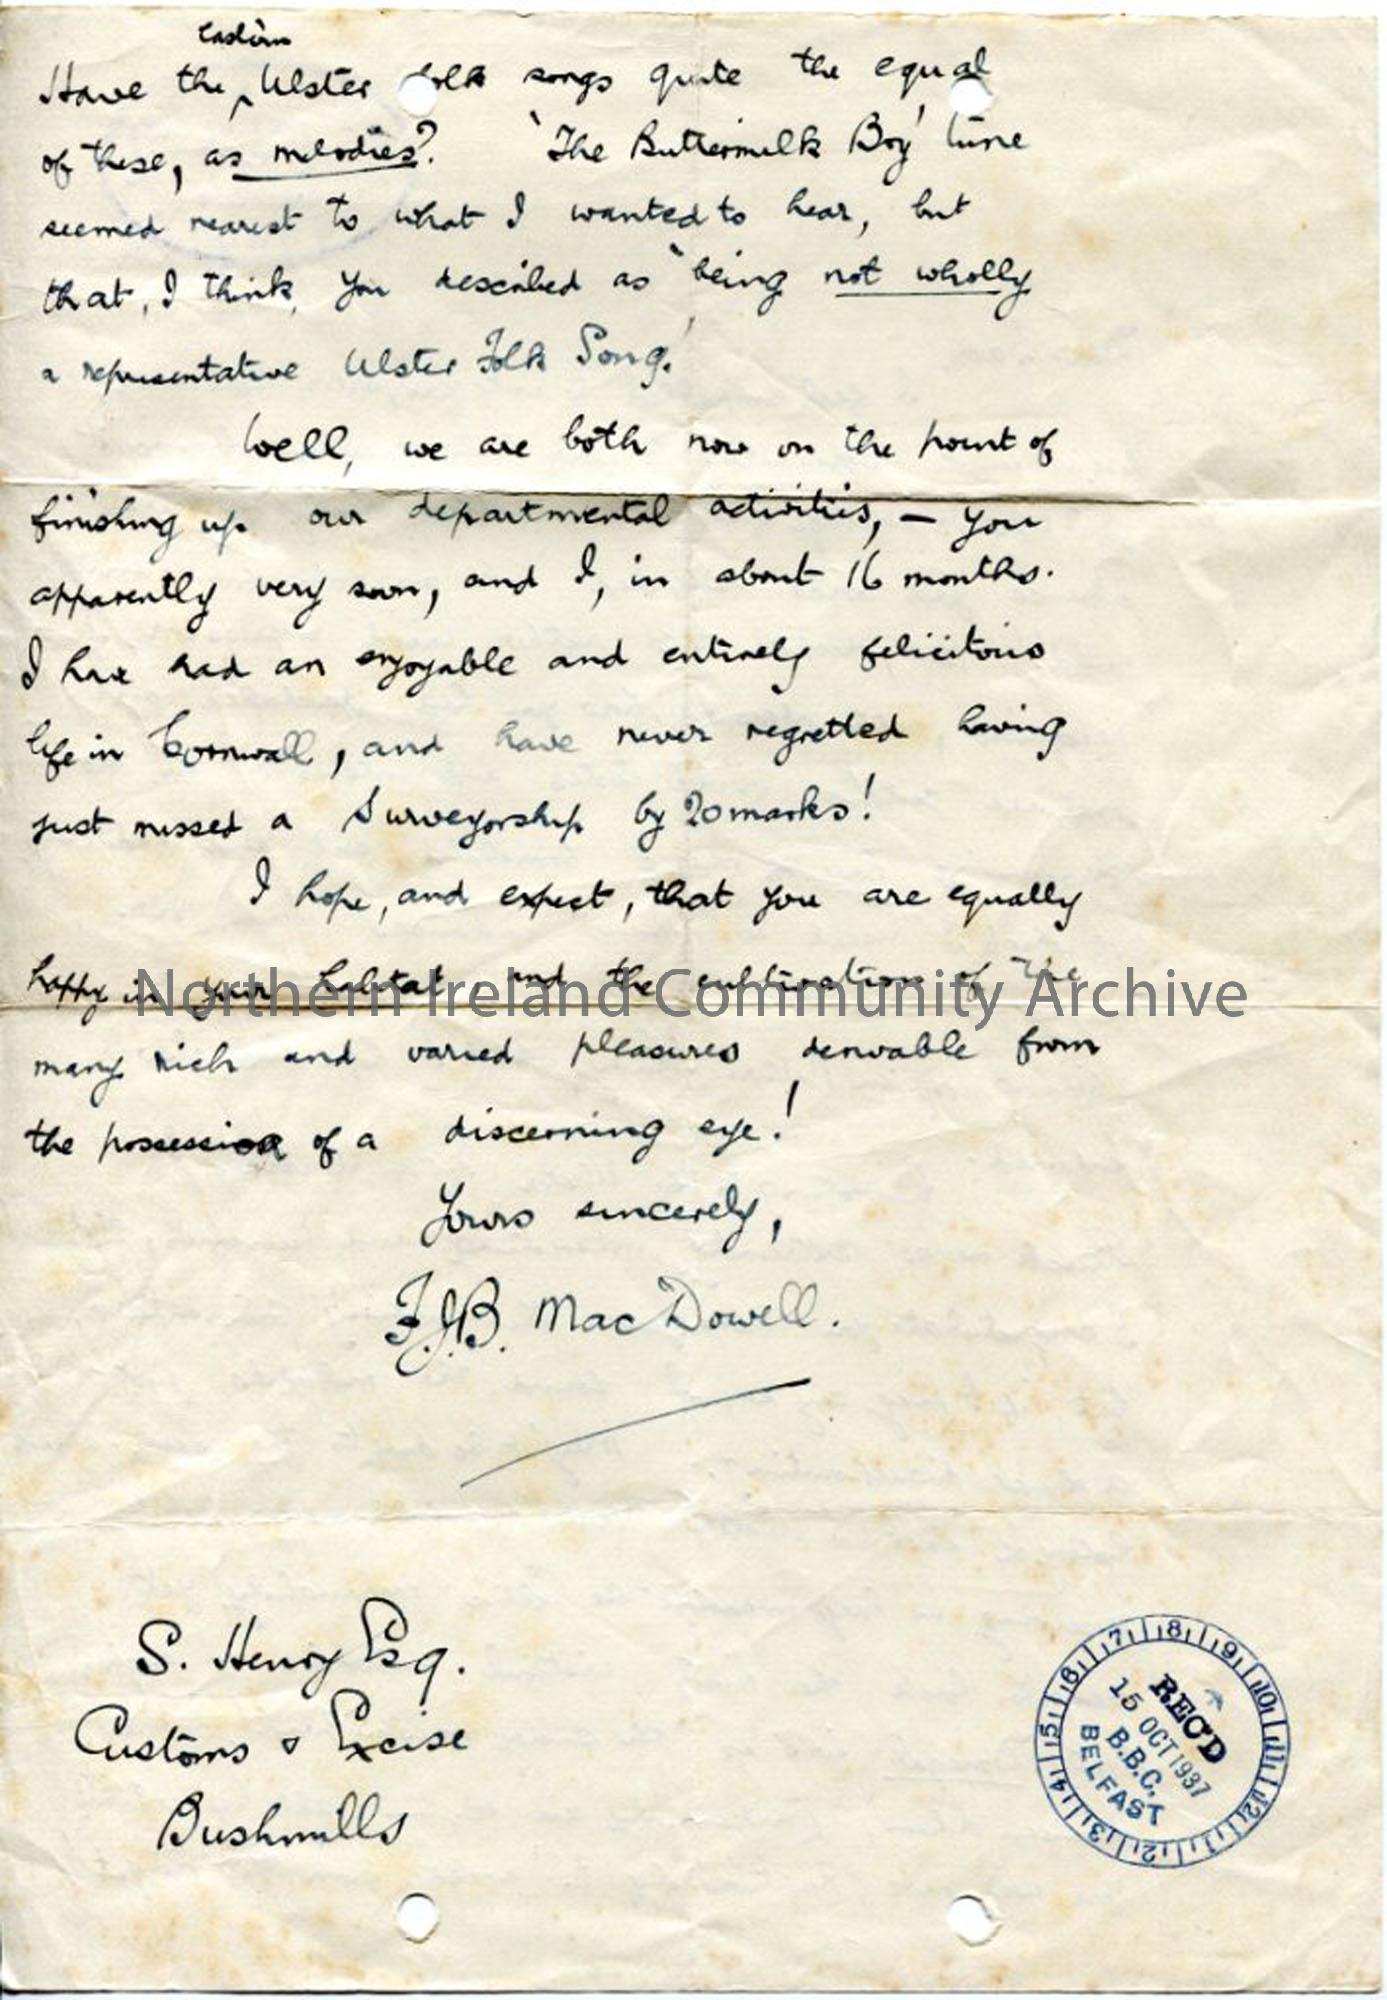 Eastern
Have the ^ Ulster folk songs quite the equal
of these, as melodies? 'The Buttermilk Boy' tune
seemed nearest to what I wanted to hear, but
that, I think, you described as 'being not wholly
a representative Ulster Folk Song.'
Well, we are both now on the point of
finishing up our departmental activities, — you
apparently very soon, and I, in about 16 months.
I have had an enjoyable and entirely felicitous
life in Cornwall, and have never regretted having
just missed a Surveyorship by 20 marks!
I hope, and expect, that you are equally
happy in your habitat, and the cultivation of the
Northern Ireland Community Archive
many rich and varied pleasures derivable from
the possession of a discerning eye!
Yours sincerely,
F.J.B. MacDowell.
S. Henry Esq.
Customs & Excise
Bushmills
REC'D
15 OCT 1937
B.B.C.
BELFAST
1 2 3 4 5 6 7 8 9 10 11 12